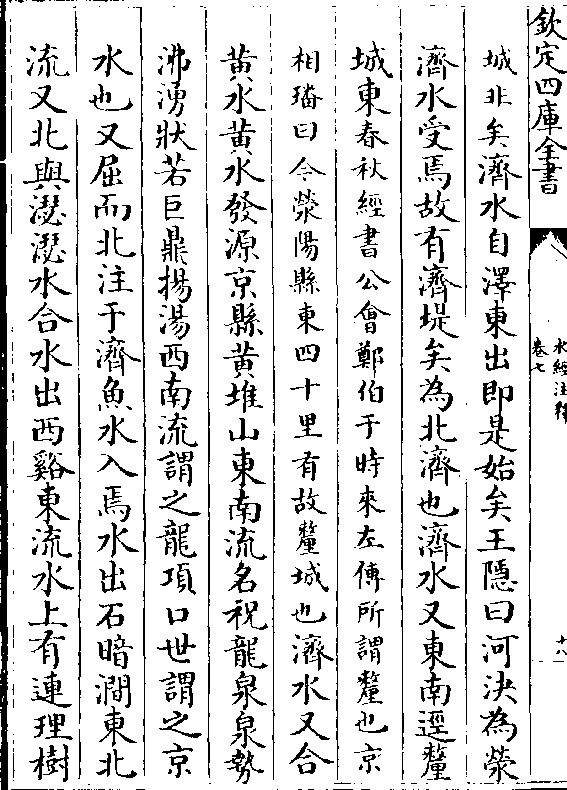 欽定四庫全書
水經注釋
卷七
十八
城非矣濟水自澤東出即是始矣王隱曰河決為滎
濟水受焉故有濟堤矣為北濟也濟水又東南逕釐
城東春秋經書公會鄭伯于時來左傳所謂釐也京
相璠曰今滎陽縣東四十里有故釐城也濟水又合
黄水黄水發源京縣黄堆山東南流名祝龍泉泉勢
沸湧狀若巨鼎揚湯西南流謂之龍項口世謂之京
水也又屈而北注于濟魚水入焉水出石暗澗東北
流又北與濏濏水合水出西谿東流水上有連理樹